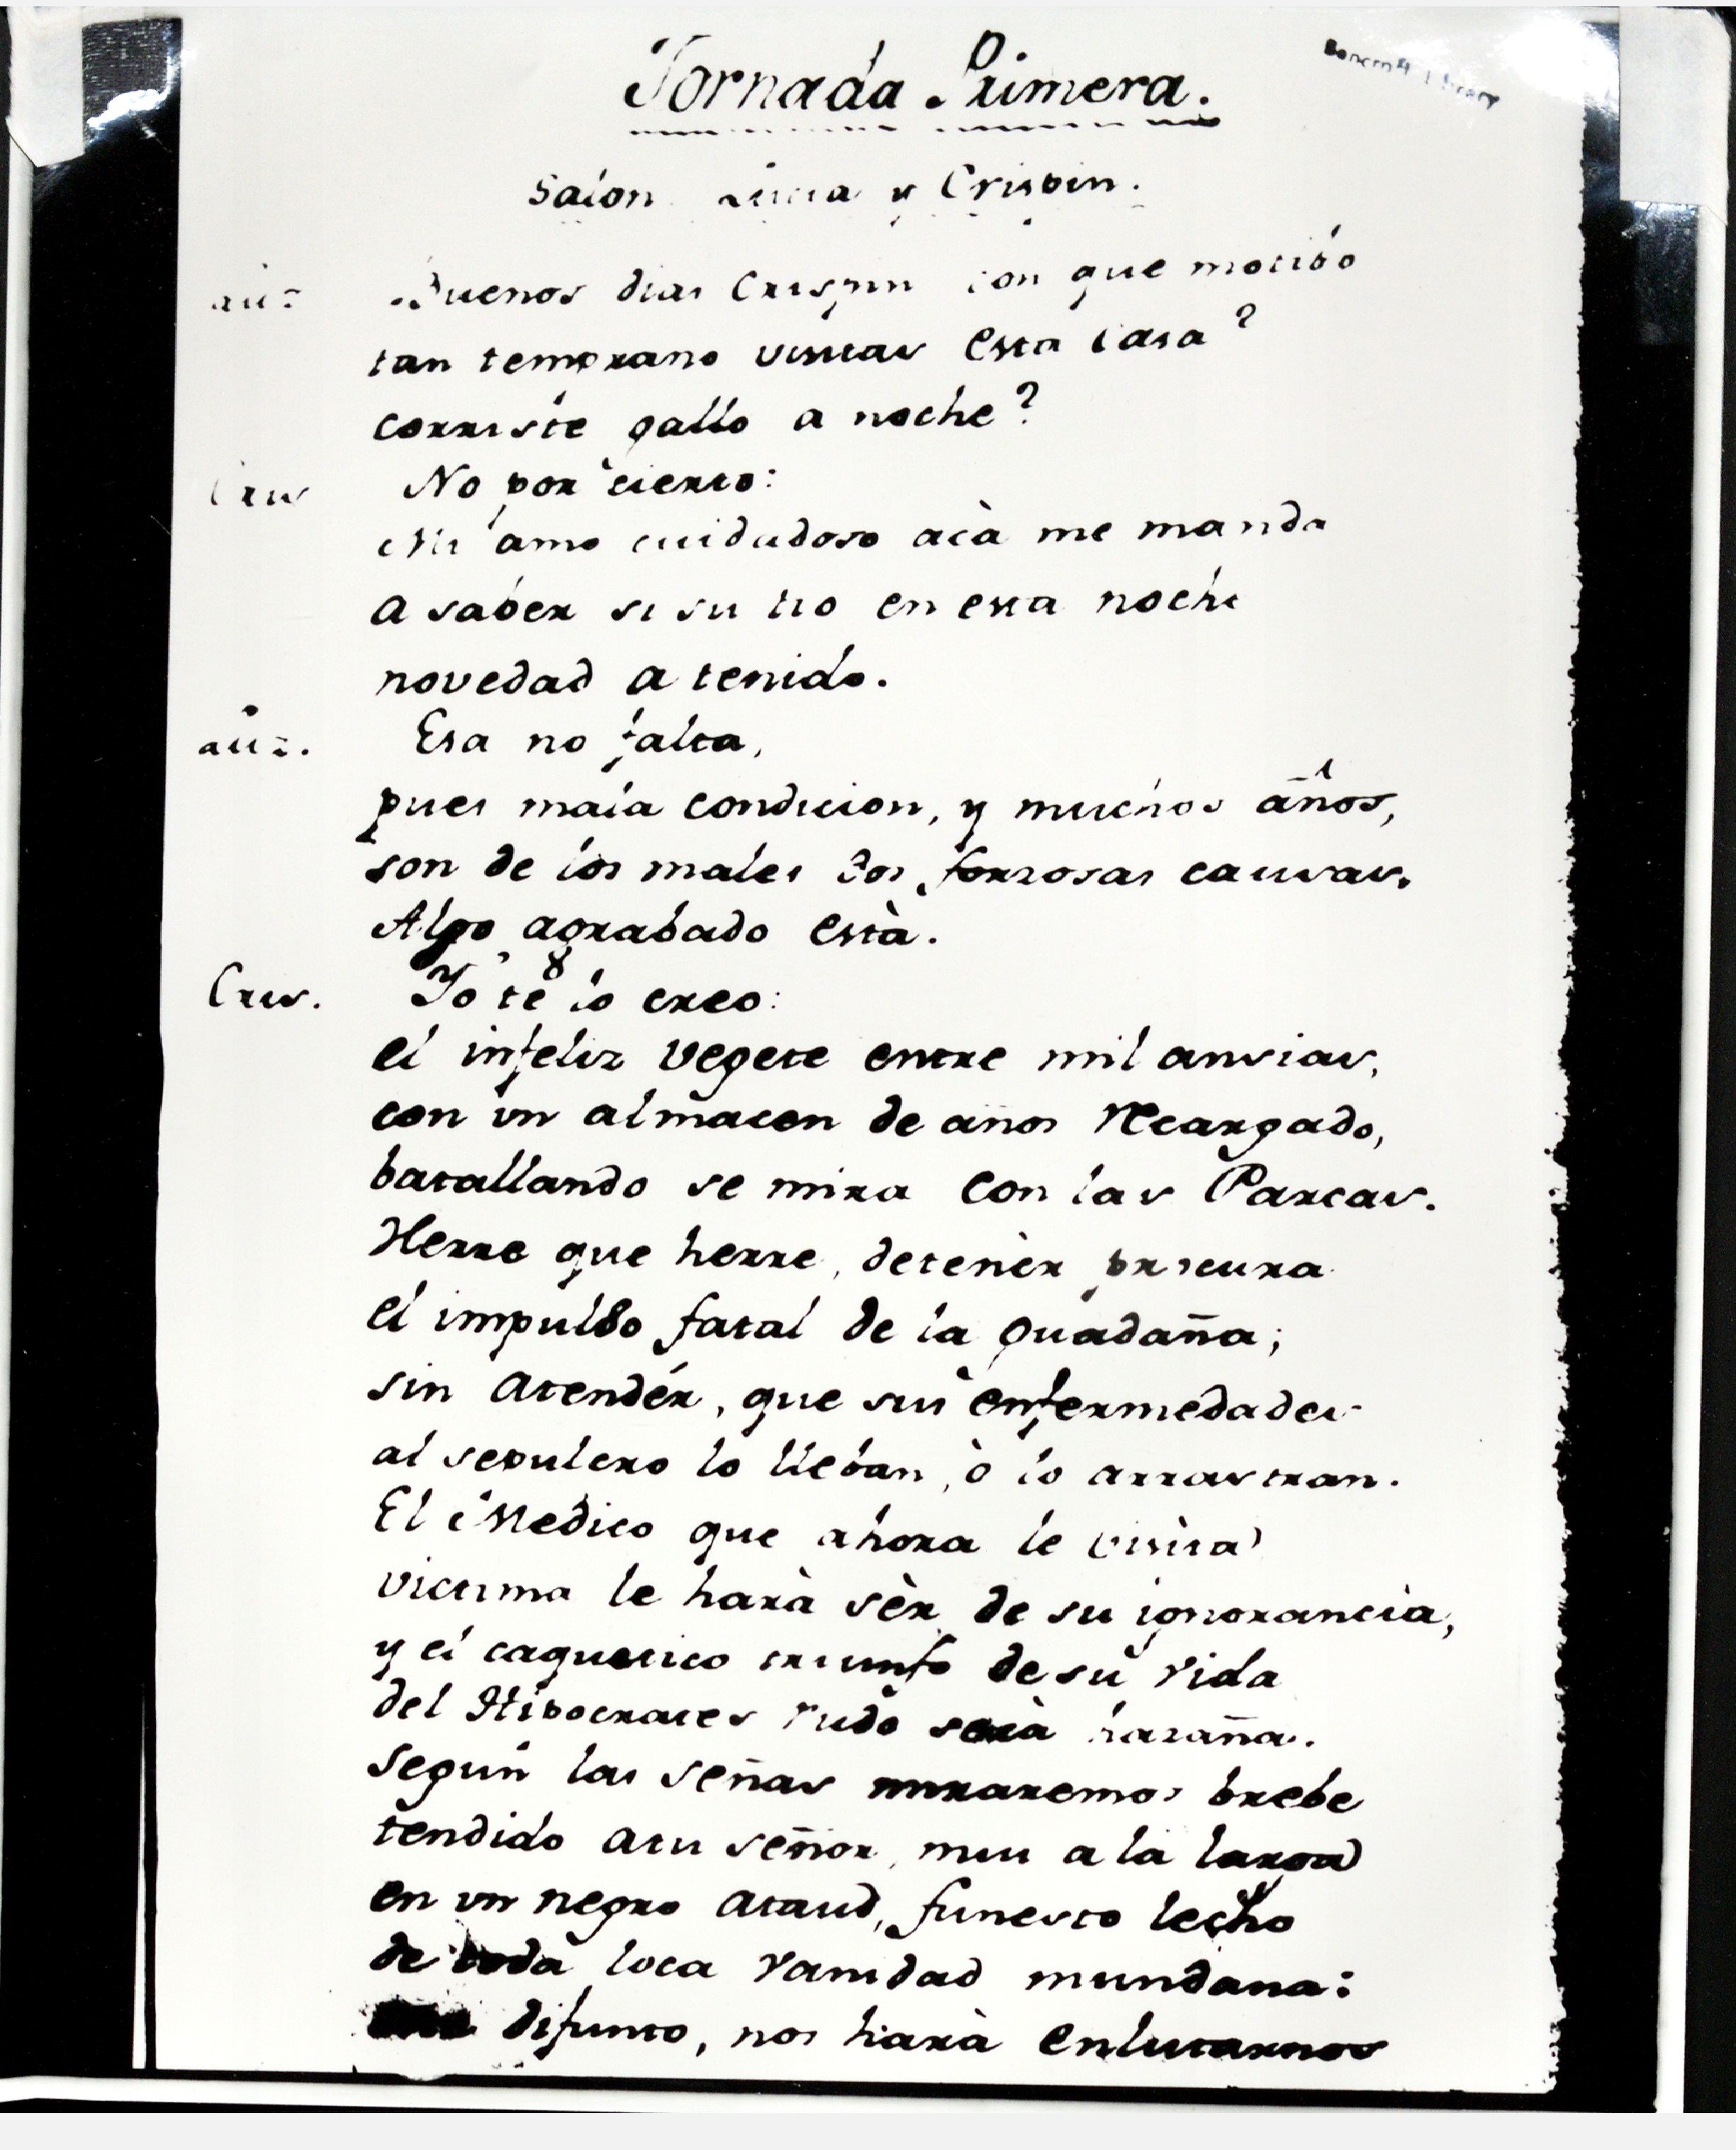 Jornada Primera.
Bancroft Library
Salon Lucia y Crispin.
Buenos dias Crispin con que motibo
tan temprano visitas esta casa?
corriste gallo a noche?
Cris No por cierto:
Mi amo cuidadoso acà me manda
a saber si su tio en esta noche
novedad a tenido.
Esa no falta,
pues mala condicion, y muchos años,
son de los males dos forzosas causas.
Algo agrabado està.
Cris. Yo te lo creo:
el infeliz vegete entre mil ansias,
con un almacen de años recargado,
batallando se mira con las Parcas.
Herre que herre, detenèr procura
el impulso fatal de la guadaña;
sin atendér, que sus enfermedades
al sepulcro lo lleban, ò lo arrastran.
El Medico que ahora le visita
victima le harà sèr de su ignorancia,
y el caquetico triunfo de su vida
del Hipocrates rudo serà hazaña.
Segun las señas miraremos brebe
tendido a tu señor, mui a la larga
en un negro ataud, funesto lecho
de toda loca vanidad mundana:
difunto, nos harà enlutarnos